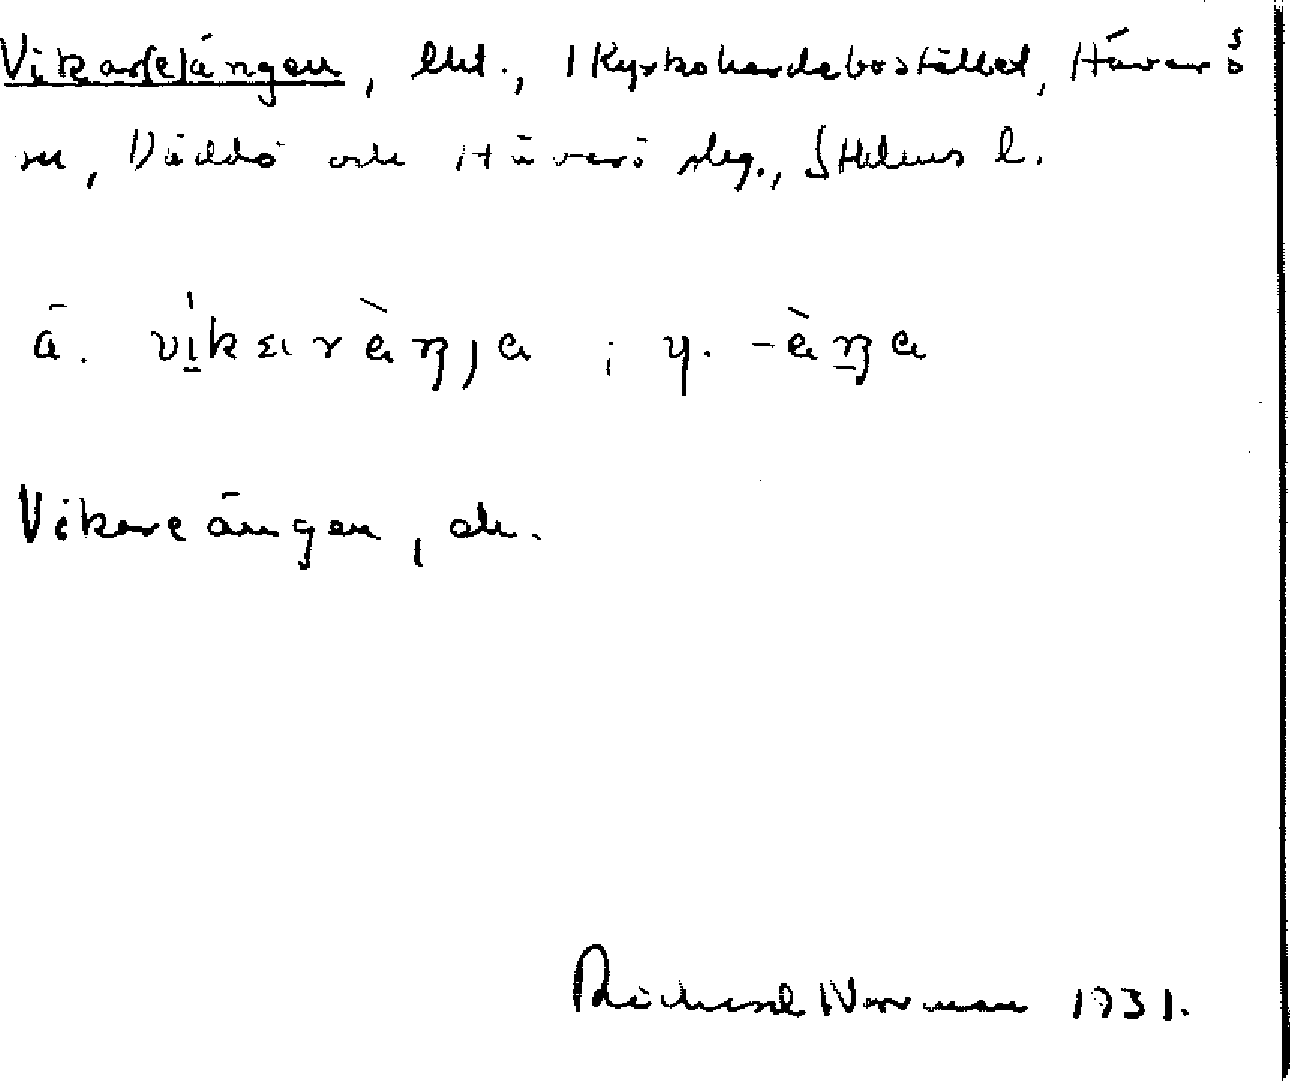 Vikar(e)ängen, lht., 1 Kyrkoherdebostället, Häverö
sn, Väddö och Häverö slg., Sthlms l.
ä. vikarèŋja ; y. -èŋa
Vikareängen, ch.
Richard Norrman 1931.